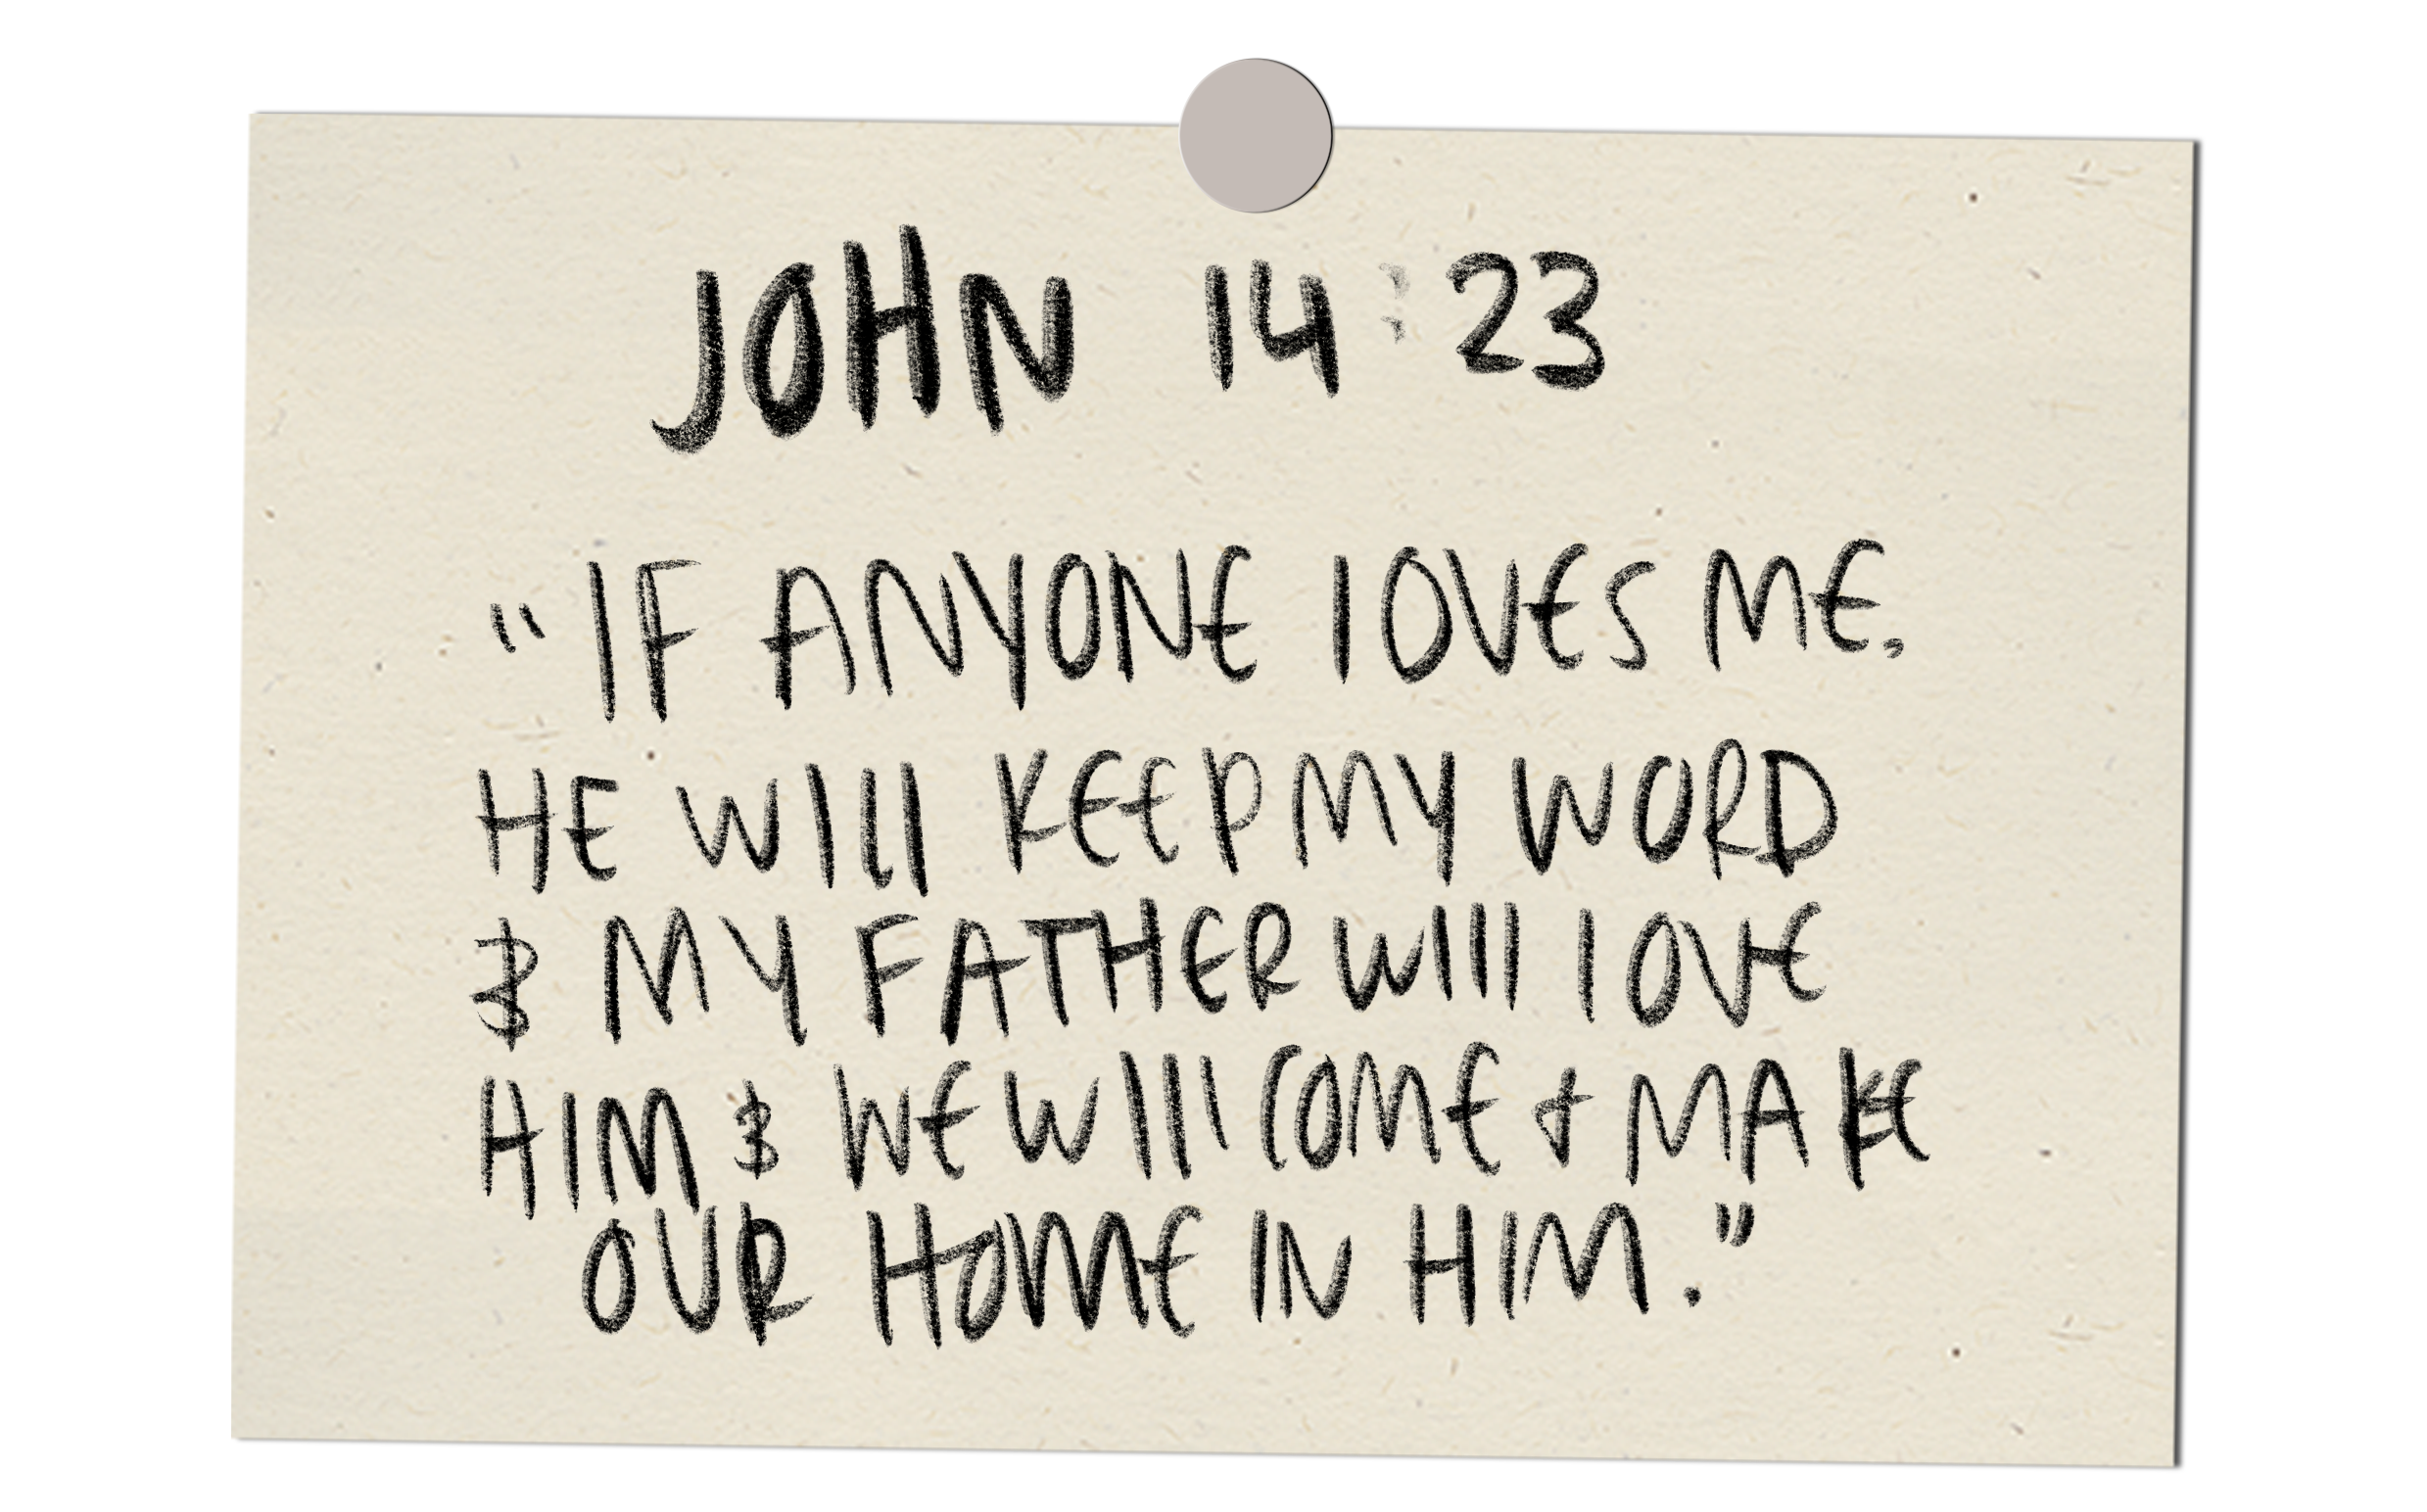 JOHN 14:23
"IF ANYONE lOVES ME,
HE WIll KEEP MY WORD
& MY FATHER WIll lOVE
HIM & WE WIll COME & MAKE
OUR HOME IN HIM."